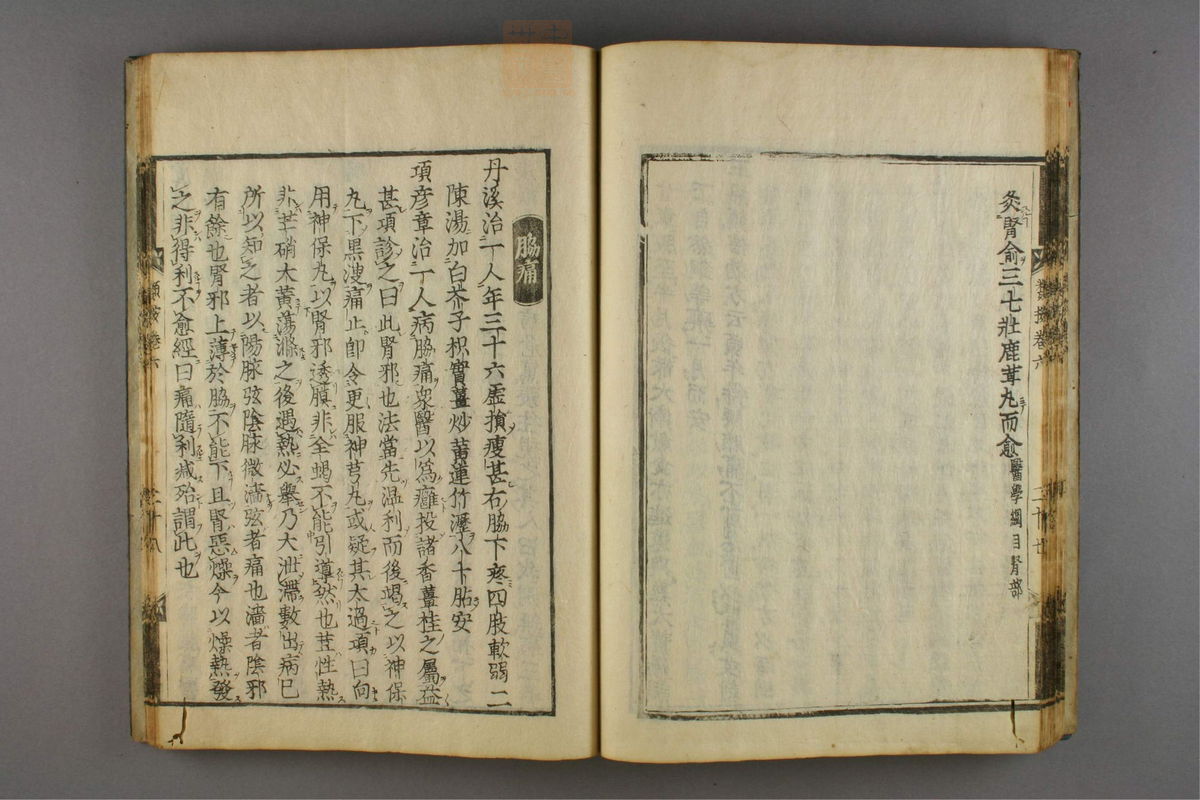 灸腎俞三七壯鹿茸丸而愈醫學綱目腎部
類按卷六
二十七
脇痛
丹溪治一人年三十六虛損瘦甚右脇下疼四肢軟弱二
陳湯加白芥子枳實薑炒黃連竹瀝八十貼安
項彥章治一人病脇痛衆醫以爲癰投諸香薑桂之屬益
甚項診之曰此腎邪也法當先温利而後竭之以神保
丸下黑溲痛止即令更服神芎丸或疑其太過項曰向
用神保丸以腎邪透膜非全蝎不能引導然巴豆性熱
非芒硝大黃蕩滌之後遇熱必舉乃大泄滯數出病已
所以知之者以陽脉弦陰脉微濇弦者痛也濇者陰邪
有餘也腎邪上薄於脇不能下且腎惡燥今以燥熱發
之非得利不愈經曰痛隨利減殆謂此也
類按 卷六
二十八